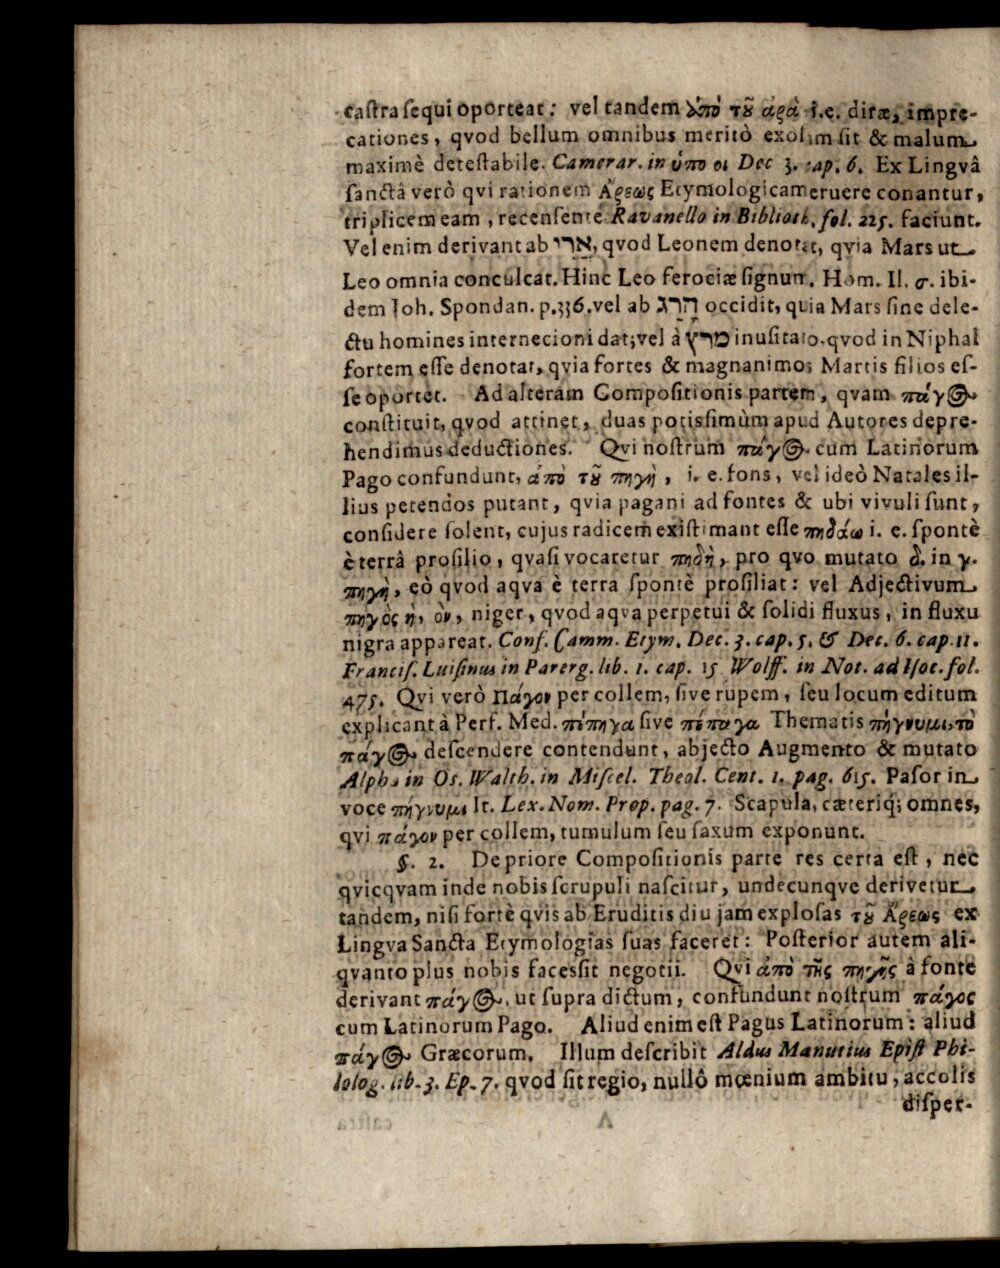 castra ſequi oporteat: vel tandem ἀπὸ τοῦ ἀρὰ i.e. diræ, impre-
cationes, qvod bellum omnibus meritò exoſum ſit & malum
maximè deteſtabile. Camerar. in ὑπο οι Dec 3. cap. 6. Ex Lingvâ
ſanctâ verò qvi rationem Ἄρεως Etymologicam eruere conantur,
triplicem eam, recenſente Ravanello in Biblioth. fol. 225. faciunt.
Vel enim derivant ab אֲרִי, qvod Leonem denotet, qvia Mars ut
Leo omnia conculcat. Hinc Leo ferociæ ſignum. Hom. Il. σ. ibi-
dem Joh. Spondan. p. 336. vel ab הָרַג occidit, quia Mars ſine dele-
ctu homines internecioni dat; vel à מרץ inuſitato, qvod in Niphal
fortem eſſe denotat, qvia fortes & magnanimos Martis filios eſ-
ſe oportet. Ad alteram Compoſitionis partem, qvam πάγος
conſtituit, qvod attinet, duas potisſimùm apud Autores depre-
hendimus deductiones. Qvi noſtrum πάγος cum Latinorum
Pago confundunt, ἀπὸ τοῦ πηγὴ, i. e. fons, vel ideò Natales il-
lius petendos putant, qvia pagani ad fontes & ubi vivuli ſunt,
conſidere ſolent, cujus radicem exiſtimant eſſe πηδάω i. e. ſpontè
è terrâ proſilio, qvaſi vocaretur πηδὴ, pro qvo mutato δ. in γ.
πηγὴ, eò qvod aqva è terra ſpontè proſiliat: vel Adjectivum
πηγὸς ὴ, ὸν, niger, qvod aqva perpetui & ſolidi fluxus, in fluxu
nigra appareat. Conf. Camm. Etym. Dec. 3. cap. 5. & Dec. 6. cap. 11.
Franciſ. Luiſinus in Parerg. lib. 1. cap. 15 Wolff. in Not. ad Iſoc. fol.
475. Qvi verò Πάγον per collem, ſive rupem, ſeu locum editum
explicant à Perf. Med. πέπηγα ſive πέπαγα Thematis πήγνυμι, τὸ
πάγος deſcendere contendunt, abjecto Augmento & mutato
Alpha in Os. Walth. in Miſcel. Theol. Cent. 1. pag. 615. Paſor in
voce πήγνυμι It. Lex. Nom. Prop. pag. 7. Scapula, cæteriq; omnes,
qvi πάγον per collem, tumulum ſeu ſaxum exponunt.
§. 2. De priore Compoſitionis parte res certa eſt, nec
qvicqvam inde nobis ſcrupuli naſcitur, undecunqve derivetur
tandem, niſi fortè qvis ab Eruditis diu jam exploſas τοῦ Ἄρεως ex
Lingva Sancta Etymologias ſuas faceret: Poſterior autem ali-
qvanto plus nobis facesſit negotii. Qvi ἀπὸ τῆς πηγῆς à fonte
derivant πάγος, ut ſupra dictum, confundunt noſtrum πάγος
cum Latinorum Pago. Aliud enim eſt Pagus Latinorum: aliud
πάγος Græcorum. Illum deſcribit Aldus Manutius Epiſt Phi-
lolog. lib. 3. Ep. 7. qvod ſit regio, nullô mœnium ambitu, accolis
diſper-